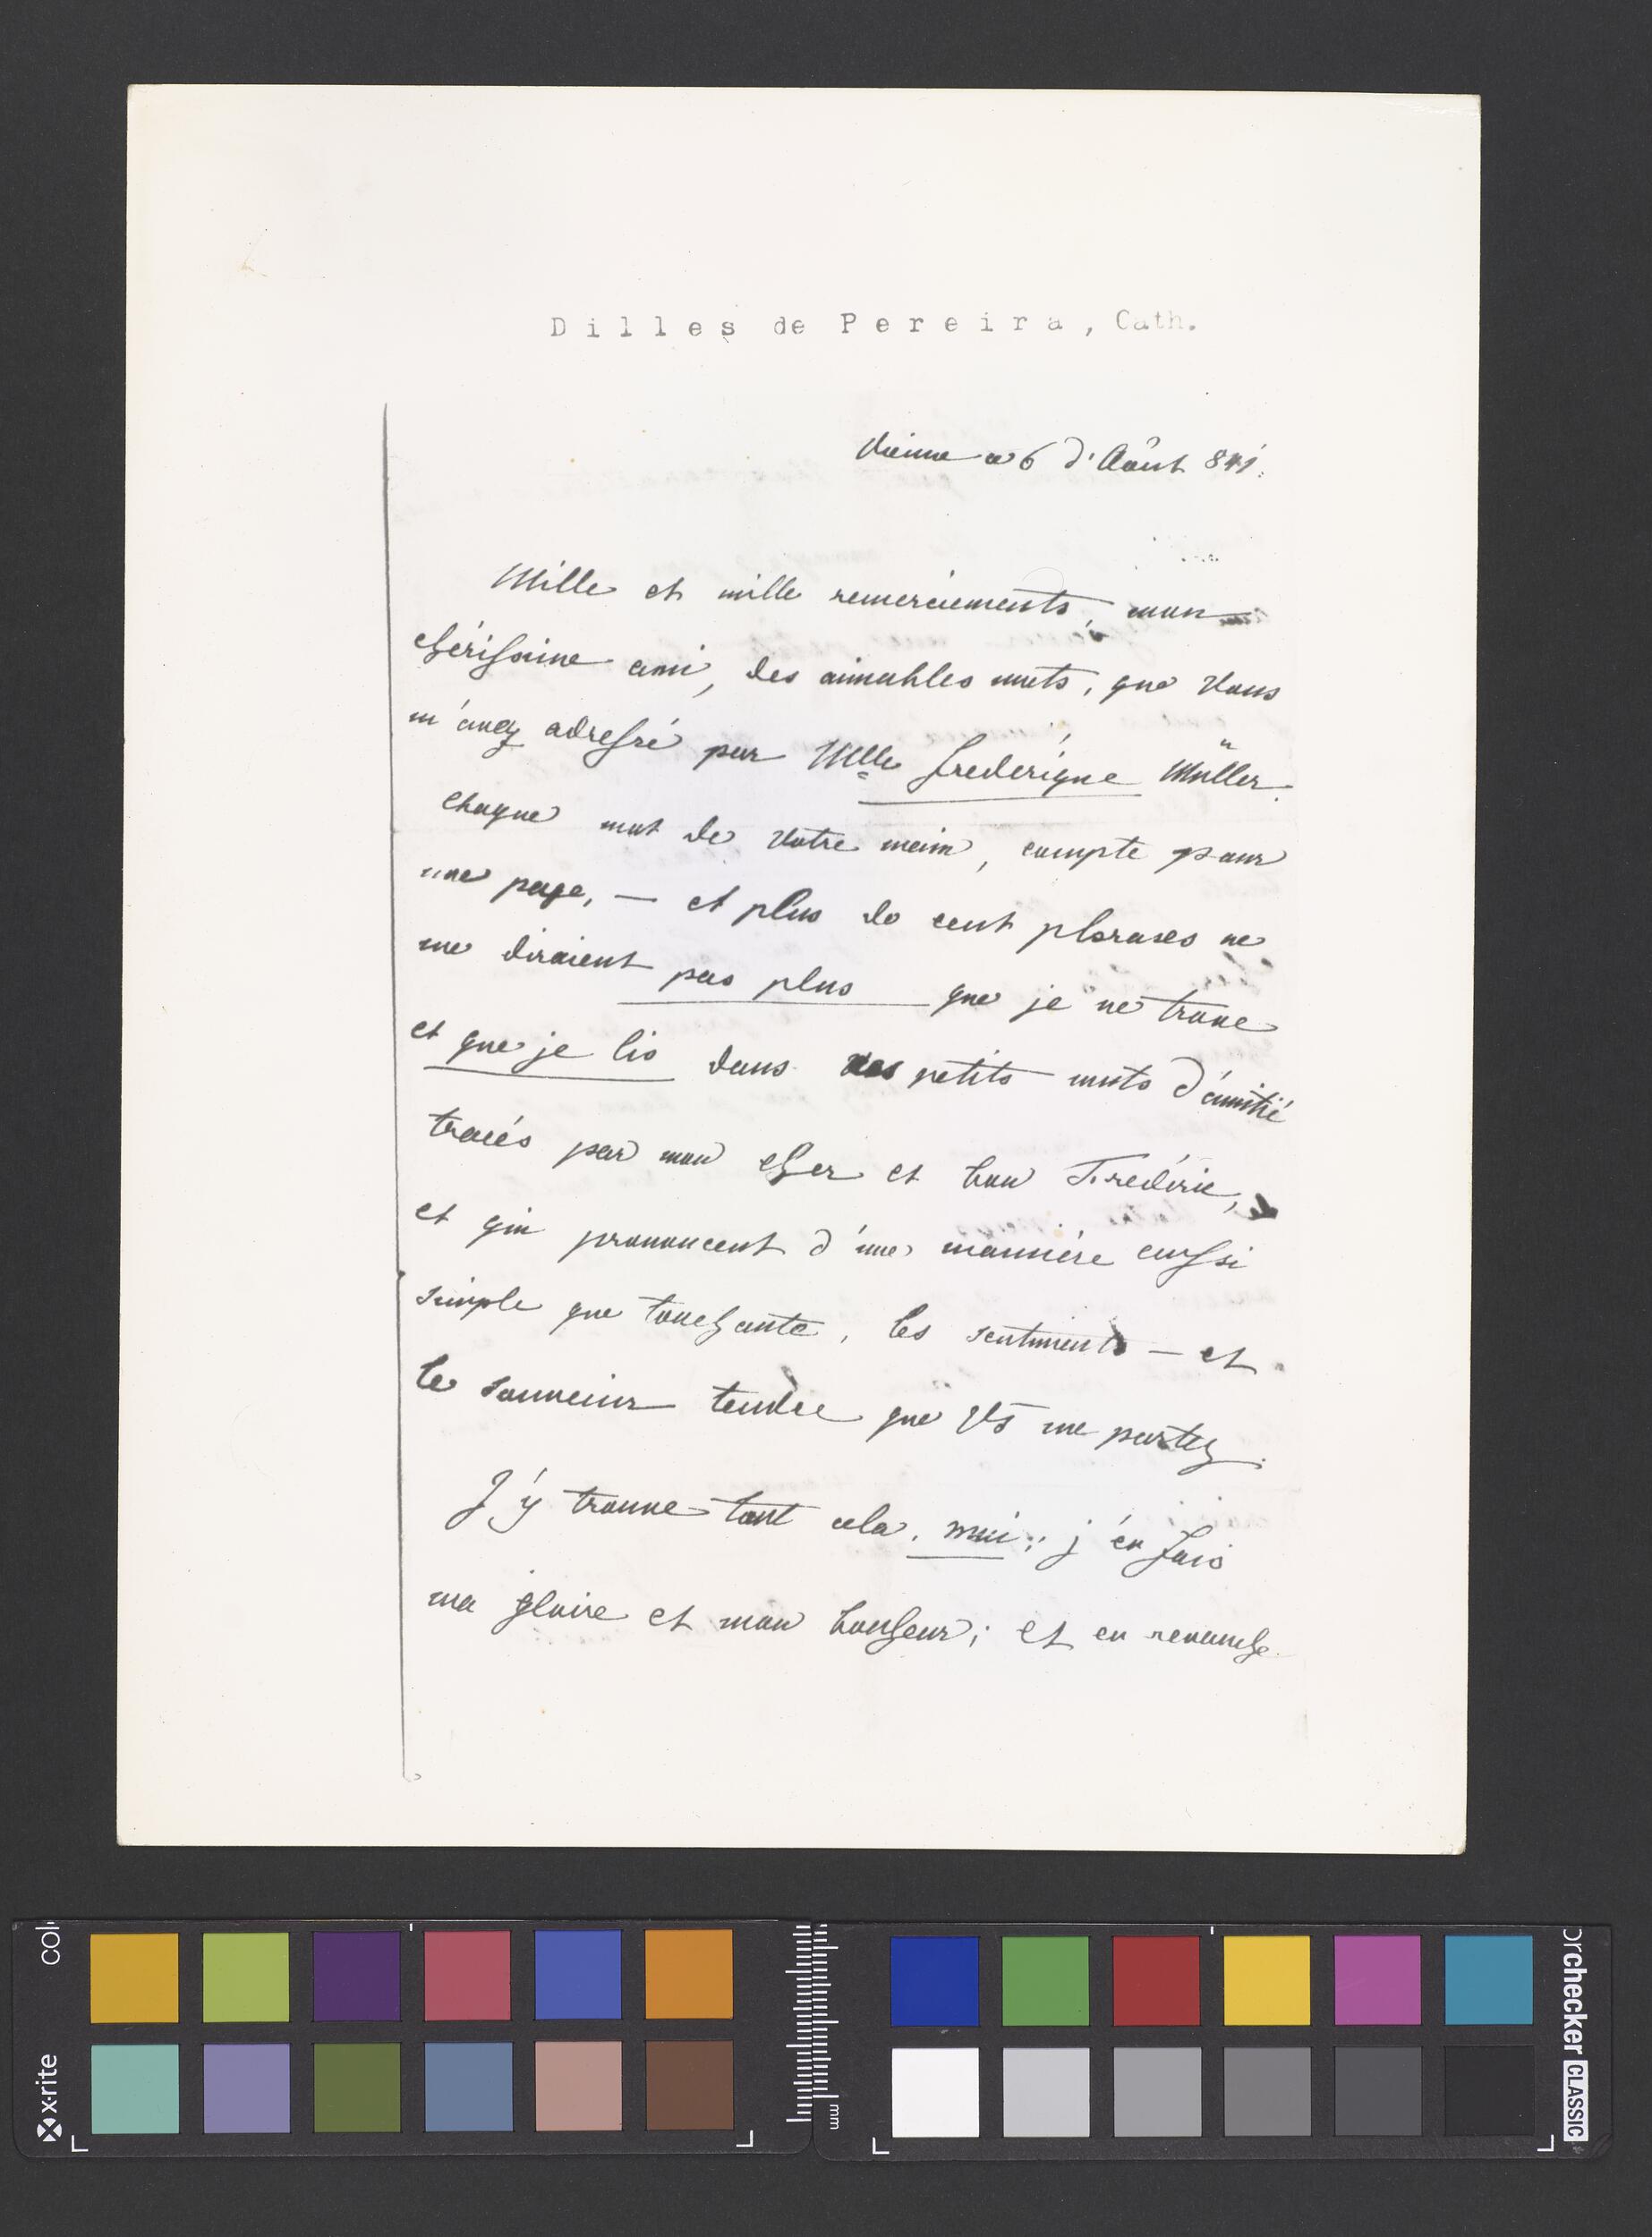 Dilles de Pereira, Cath.
Vienne ce 6 d'Août 841.
Mille et mille remerciements, mon
chérissime ami, des aimables mots, que Vous
m'avez adressé par Mlle Frederique Müller.
chaque mot de Votre main, compte pour
une page, — et plus de cent phrases ne
me diraient pas plus que je ne trouve
et que je lis dans ces petits mots d'amitié
tracés par mon cher et bon Frédéric,
et qui prononcent d'une mannière aussi
simple que touchante, les sentiments — et
le souvenir tendre que Vs me portez.
J'y trouve tout cela, moi; j'en fais
ma gloire et mon bonheur; et en revanche
x-rite
col
mm
orchecker CLASSIC